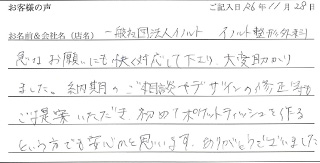 お客様の声
ご記入日 R6年11月28日
お名前&会社名(店名) 一般社団法人イノルト イノルト整形外科
急なお願いにも快く対応して下さり、大変助かり
ました。納期のご相談やデザインの修正等も
ご提案いただき、初めてポケットティッシュを作る
という方でも安心だと思います。ありがとうございました